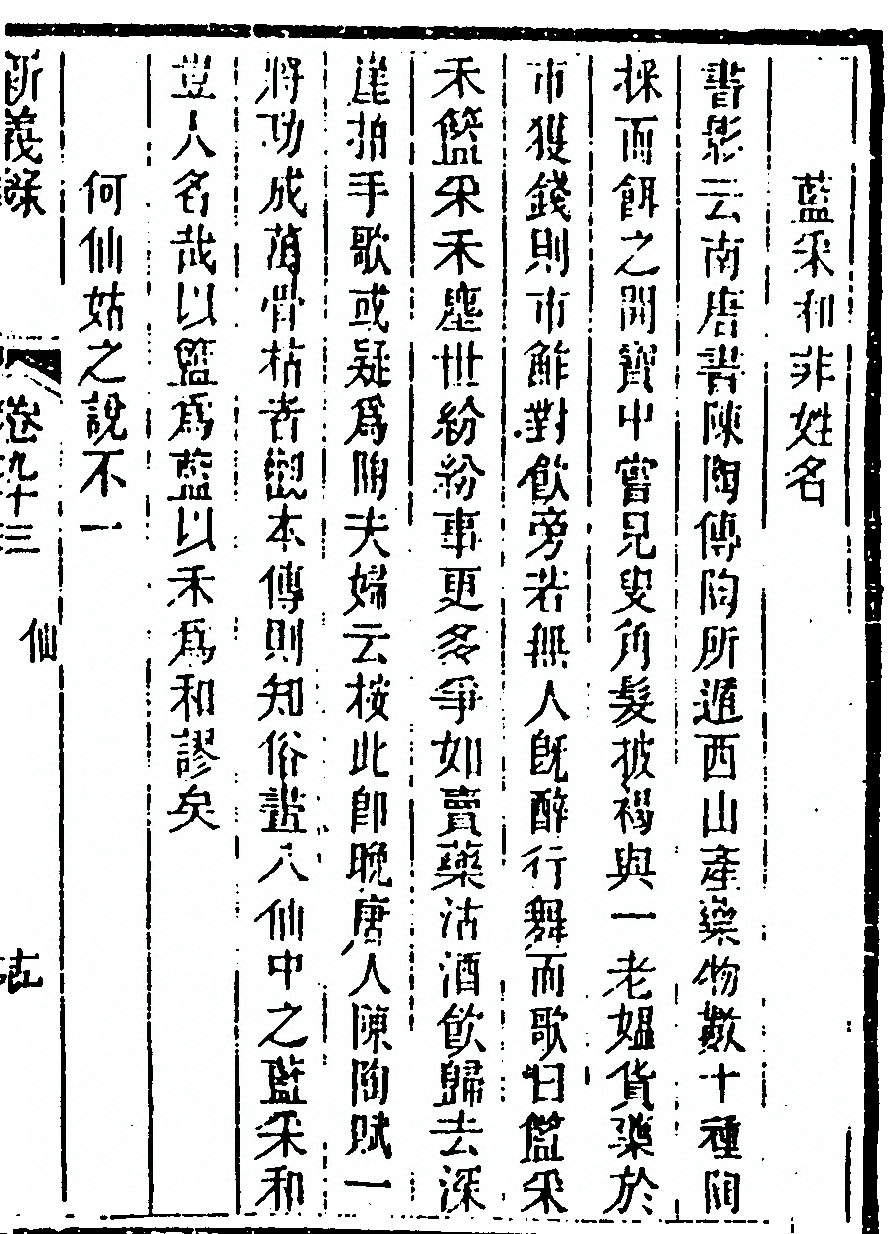 藍采和非姓名
書影云南唐書陳陶傳陶所遁西山產藥物數十種陶
採而餌之開寶中嘗見叟角髮披褐與一老媼貨藥於
市獲錢則市鮓對飲旁若無人既醉行舞而歌曰籃采
禾籃采禾塵世紛紛事更多爭如賣藥沽酒飲歸去深
崖拍手歌或疑為陶夫婦云按此即晚唐人陳陶賦一
將功成萬骨枯者觀本傳則知俗畫八仙中之藍采和
豈人名哉以籃為藍以禾為和謬矣
何仙姑之說不一
卷九十三
仙